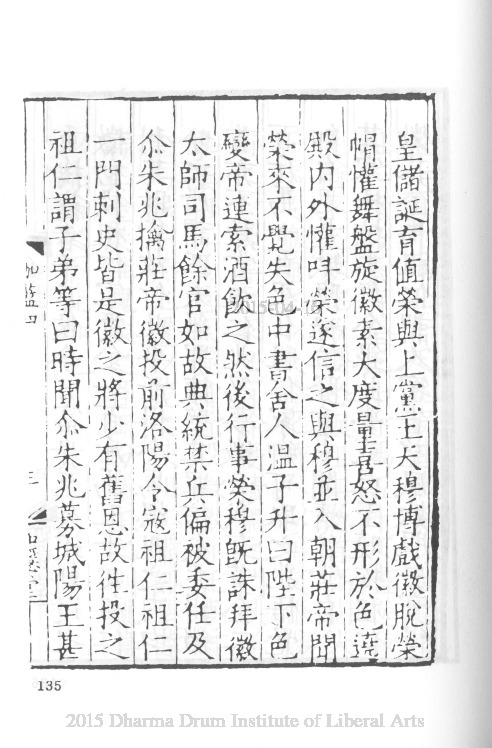 皇儲誕育值榮與上黨王天穆博戲徽脫榮
帽懽舞盤旋徽素大度量喜怒不形於色遶
殿內外懽呌榮遂信之與穆並入朝莊帝聞
榮來不覺失色中書舍人温子升曰陛下色
變帝連索酒飲之然後行事榮穆既誅拜徽
太師司馬餘官如故典統禁兵偏被委任及
尒朱兆擒莊帝徽投前洛陽令寇祖仁祖仁
一門刺史皆是徽之將少有舊恩故徃投之
祖仁謂子弟等曰時聞尒朱兆募城陽王甚
135
2015 Dharma Drum Institute of Liberal Arts